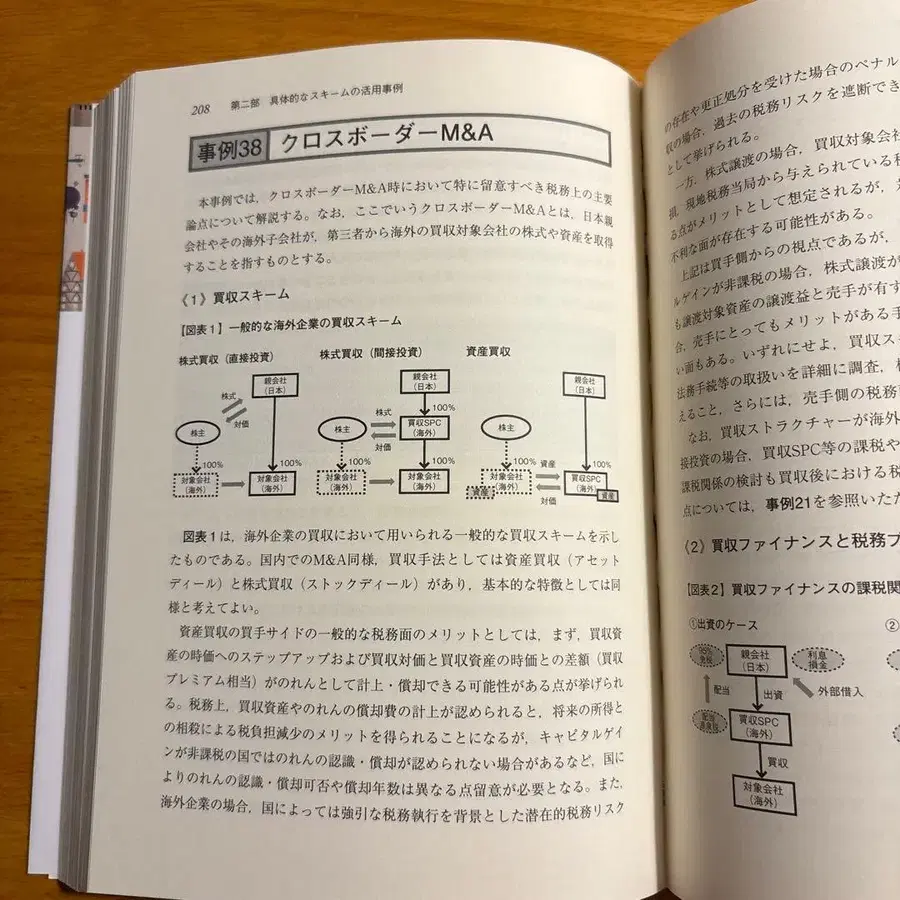 208 第二部 具体的なスキームの活用事例
事例38 クロスボーダーM&A
本事例では，クロスボーダーM&A時において特に留意すべき税務上の主要
論点について解説する。なお，ここでいうクロスボーダーM&Aとは，日本親
会社やその海外子会社が，第三者から海外の買収対象会社の株式や資産を取得
することを指すものとする。
《1》買収スキーム
【図表1】一般的な海外企業の買収スキーム
株式買収（直接投資）
親会社
（日本）
株式
対価
株主
100%
100%
対象会社
（海外）
対象会社
（海外）
株式買収（間接投資）
親会社
（日本）
100%
株式
対価
株主
買収SPC
（海外）
100%
100%
対象会社
（海外）
対象会社
（海外）
資産買収
親会社
（日本）
株主
100%
100%
資産
対価
対象会社
（海外）
資産
買収SPC
（海外）
資産
図表1は，海外企業の買収において用いられる一般的な買収スキームを示し
たものである。国内でのM&A同様，買収手法としては資産買収（アセット
ディール）と株式買収（ストックディール）があり，基本的な特徴としては同
様と考えてよい。
資産買収の買手サイドの一般的な税務面のメリットとしては，まず，買収資
産の時価へのステップアップおよび買収対価と買収資産の時価との差額（買収
プレミアム相当）がのれんとして計上・償却できる可能性がある点が挙げられ
る。税務上，買収資産やのれんの償却費の計上が認められると，将来の所得と
の相殺による税負担減少のメリットを得られることになるが，キャピタルゲイ
ンが非課税の国ではのれんの認識・償却が認められない場合があるなど，国に
よりのれんの認識・償却可否や償却年数は異なる点留意が必要となる。また，
海外企業の場合，国によっては強引な税務執行を背景とした潜在的税務リスク
の存在や更正処分を受けた場合のペナル
収の場合，過去の税務リスクを遮断でき
として挙げられる。
一方，株式譲渡の場合，買収対象会社
損，現地税務当局から与えられている税
る点がメリットとして想定されるが，
不利な面が存在する可能性がある。
上記は買手側からの視点であるが，
ルゲインが非課税の場合，株式譲渡が
も譲渡対象資産の譲渡益と売手が有す
合，売手にとってもメリットがある手
い面もある。いずれにせよ，買収ス
法務手続等の取扱いを詳細に調査，
えること，さらには，売手側の税務
なお，買収ストラクチャーが海外
接投資の場合，買収SPC等の課税や
課税関係の検討も買収後における税
点については，事例21を参照いただ
《2》買収ファイナンスと税務
【図表2】買収ファイナンスの課税関
①出資のケース
②
95%
免税
親会社
（日本）
利息
損金
配当
出資
外部借入
買収SPC
（海外）
買収
対象会社
（海外）